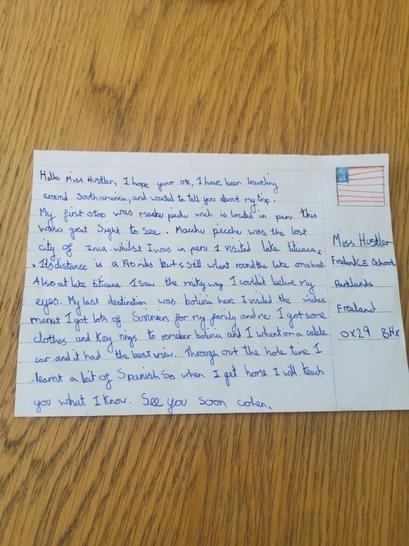 Hello Miss Hustler, I hope your ok, I have been traveling
around South america, and wanted to tell you about my trip.
My first stop was machu pichu wich is located in peru this
was a great Sight to See. Macchu picchu was the lost
city of Inca. whilst I was in peru I visited lake titicaca,
Its distance is a but I still went round the lake on a boat
Also at lake titicaca I saw the milky way I couldnt believe my
eyes. My last destination was bolivia here I visited the witches
market I got lots of Suvinirs for my family and me I got some
clothes and key rings to remeber bolivia and I whent on a cable
car and it had the best view. Through out the hole time I
learnt a bit of Spanish So when I get home I will teach
you what I know. See you soon cohen.
Miss Hustler
Freeland CE School
Parklands
Freeland
OX29 8HX